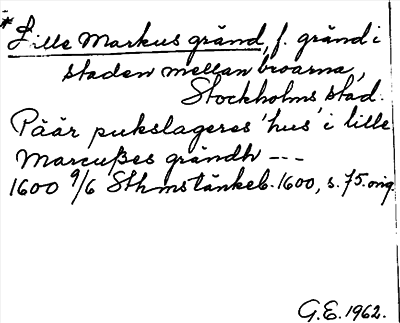 * Lille Markus gränd, f. gränd i
staden mellan broarna,
Stockholms stad.
Päär pukslageres 'hus' i lille
Marcußes grändh ---
1600 9/6 Sthmstänkeb. 1600, s. 75. orig.
G.E. 1962.